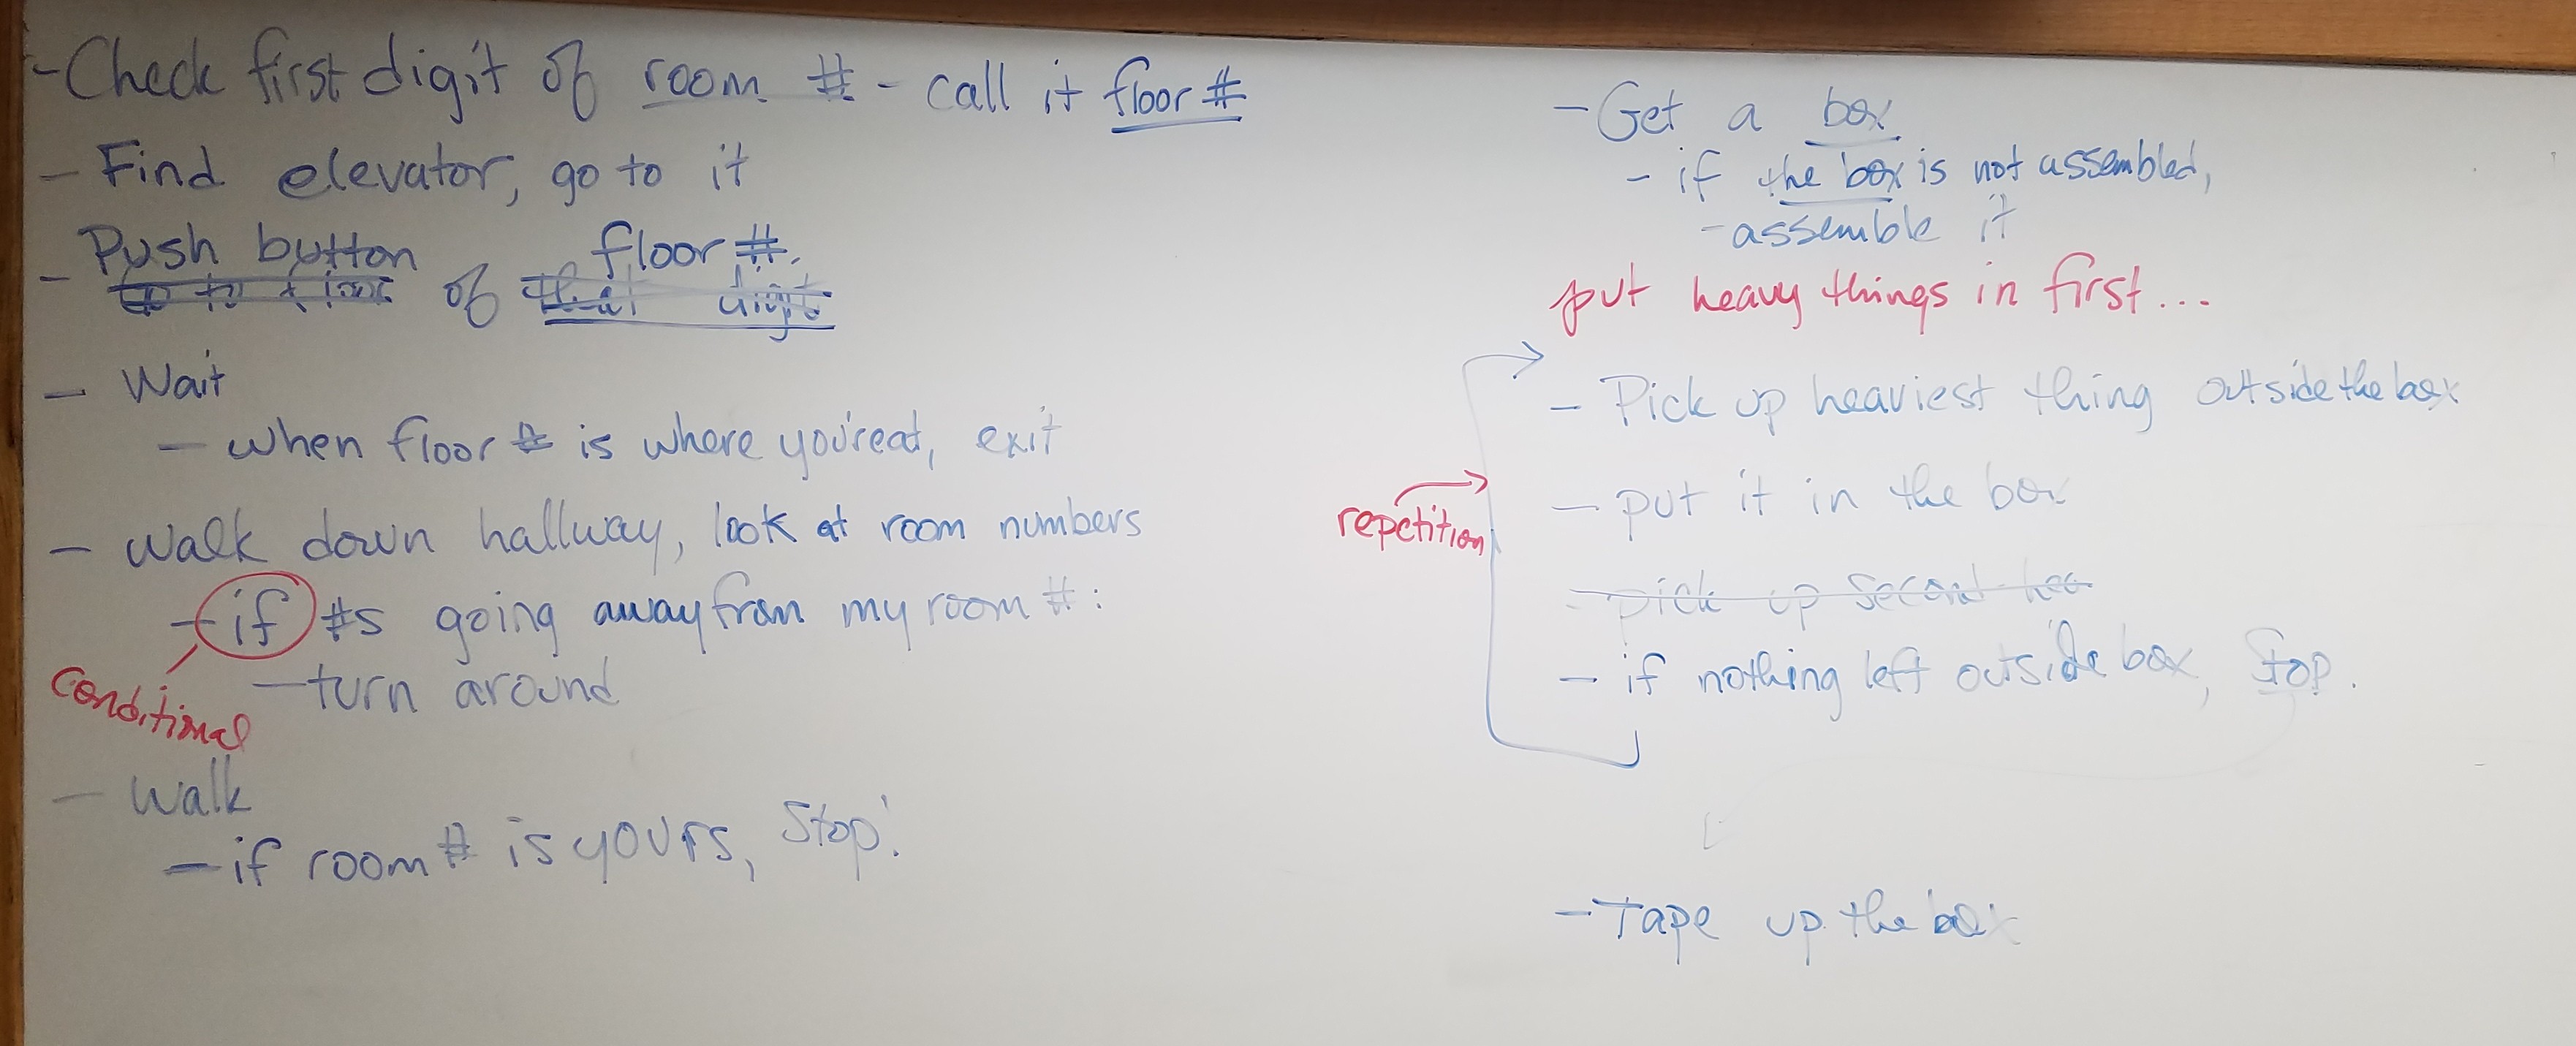 - Check first digit of room # - call it floor #
- Find elevator, go to it
- Push button of floor #.
go to floor that digit
- Wait
- when floor # is where you're at, exit
- walk down hallway, look at room numbers
- if #s going away from my room #:
conditional
- turn around
- Walk
- if room # is yours, Stop!
- Get a box
- if the box is not assembled,
- assemble it
put heavy things in first...
- Pick up heaviest thing outside the box
repetition
- put it in the box
- pick up second hea
- if nothing left outside box, Stop.
- Tape up the box